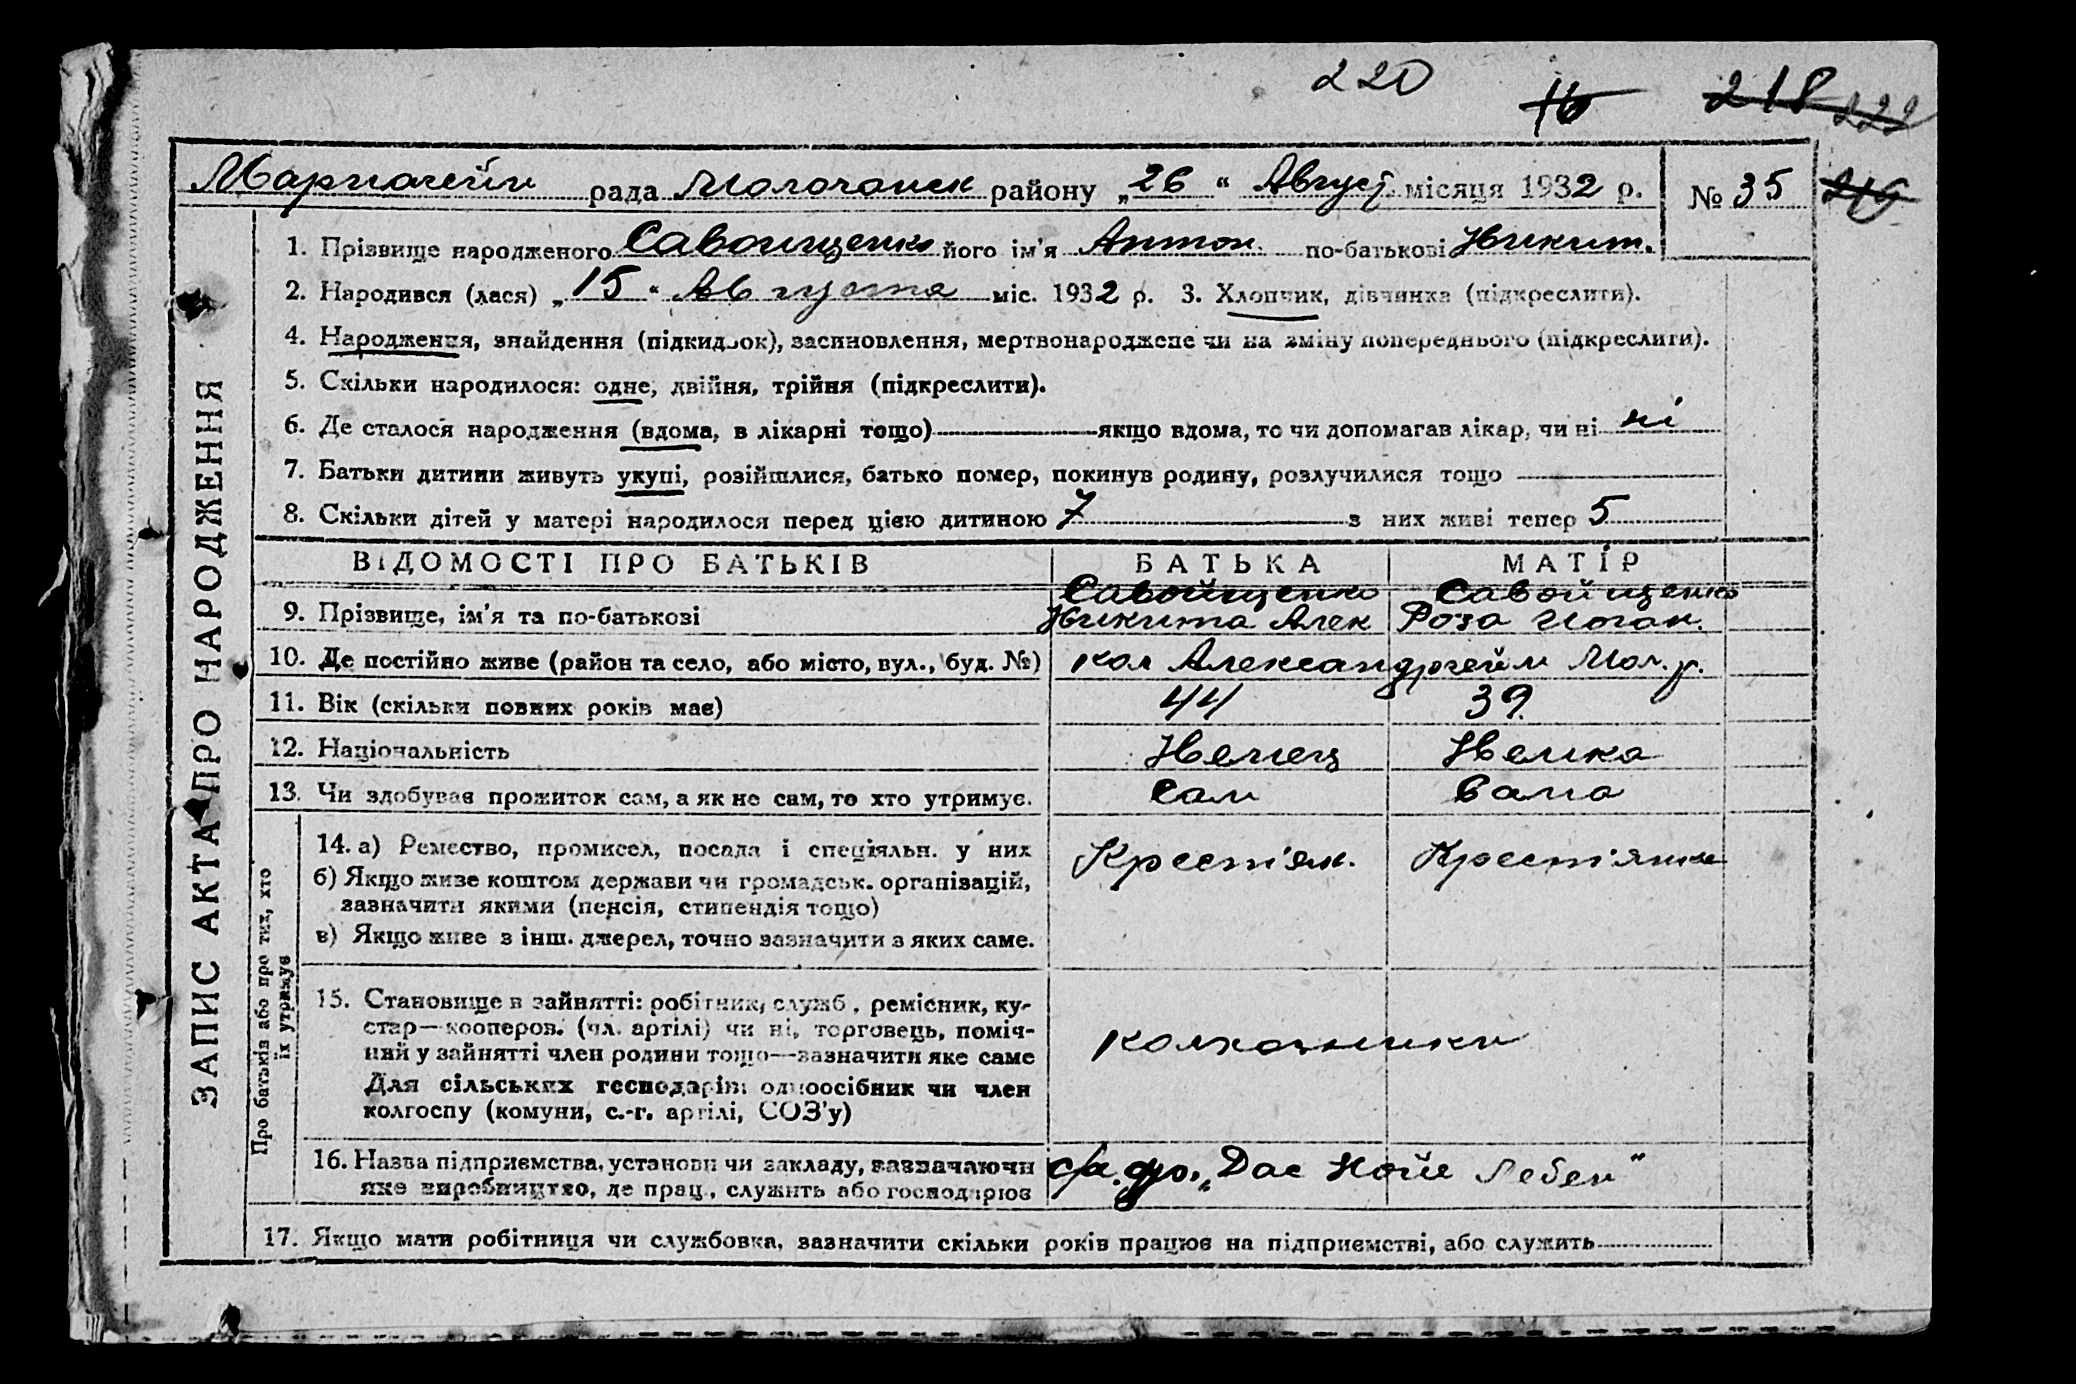 220 16 218 222
Мариагейм рада Молочанск району „26“ Август місяця 1932 р. № 35 219
1. Прізвище народженого Савоищенко його ім'я Антон. по-батькові Никит.
2. Народився (лася) „15“ Августа міс. 1932 р. 3. Хлопчик, дівчинка (підкреслити).
4. Народження, знайдення (підкидьок), засиновлення, мертвонароджене чи на зміну попереднього (підкреслити).
5. Скільки народилося: одне, двійня, трійня (підкреслити).
6. Де сталося народження (вдома, в лікарні тощо) якщо вдома, то чи допомагав лікар, чи ні ні
7. Батьки дитини живуть укупі, розійшлися, батько помер, покинув родину, розлучилися тощо
8. Скільки дітей у матері народилося перед цією дитиною 7 з них живі тепер 5
ЗАПИС АКТА ПРО НАРОДЖЕННЯ
ВІДОМОСТІ ПРО БАТЬКІВ БАТЬКА МАТІР
Савойщенко Савойщенко
9. Прізвище, ім'я та по-батькові Никита Алек Роза Иоган.
10. Де постійно живе (район та село, або місто, вул., буд. №) кол Александргейм Мол. р.
11. Вік (скільки повних років має) 44 39
12. Національність Немец Немка
13. Чи здобуває прожиток сам, а як не сам, то хто утримує. Сам Сама
Про батьків або про тих, хто
їх утримує
14. а) Ремество, промисел, посада і спеціяльн. у них Крест'ян. Крест'янка
б) Якщо живе коштом держави чи громадськ. організацій,
зазначити якими (пенсія, стипендія тощо)
в) Якщо живе з інш. джерел, точно зазначити з яких саме.
15. Становище в зайнятті: робітник, служб., ремісник, ку-
стар—кооперов. (чл. артілі) чи ні, торговець, поміч-
ний у зайнятті член родини тощо—зазначити яке саме колхозники
Для сільських господарів: одноосібник чи член
колгоспу (комуни, с.-г. артілі, СОЗ'у)
16. Назва підприємства, установи чи закладу, зазначаючи с/а. „Дас Нойе Лебен“
яке виробництво, де прац., служить або господарює
17. Якщо мати робітниця чи службовка, зазначити скільки років працює на підприємстві, або служить